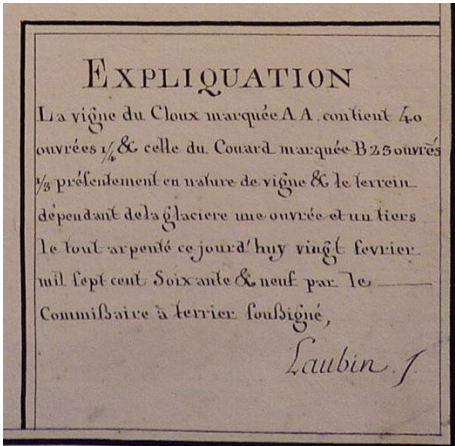 EXPLIQUATION
La vigne du Cloux marquée A A. contient 40
ouvrées 1/4 & celle du Couard marquée B 23 ouvrés
1/3 présentement en nature de vigne & le terrein
dépendant de la glaciere une ouvrée et un tiers
le tout arpenté ce jourd'huy vingt fevrier
mil sept cent Soixante & neuf par le
Commißaire à terrier soußigné,
Laubin. J